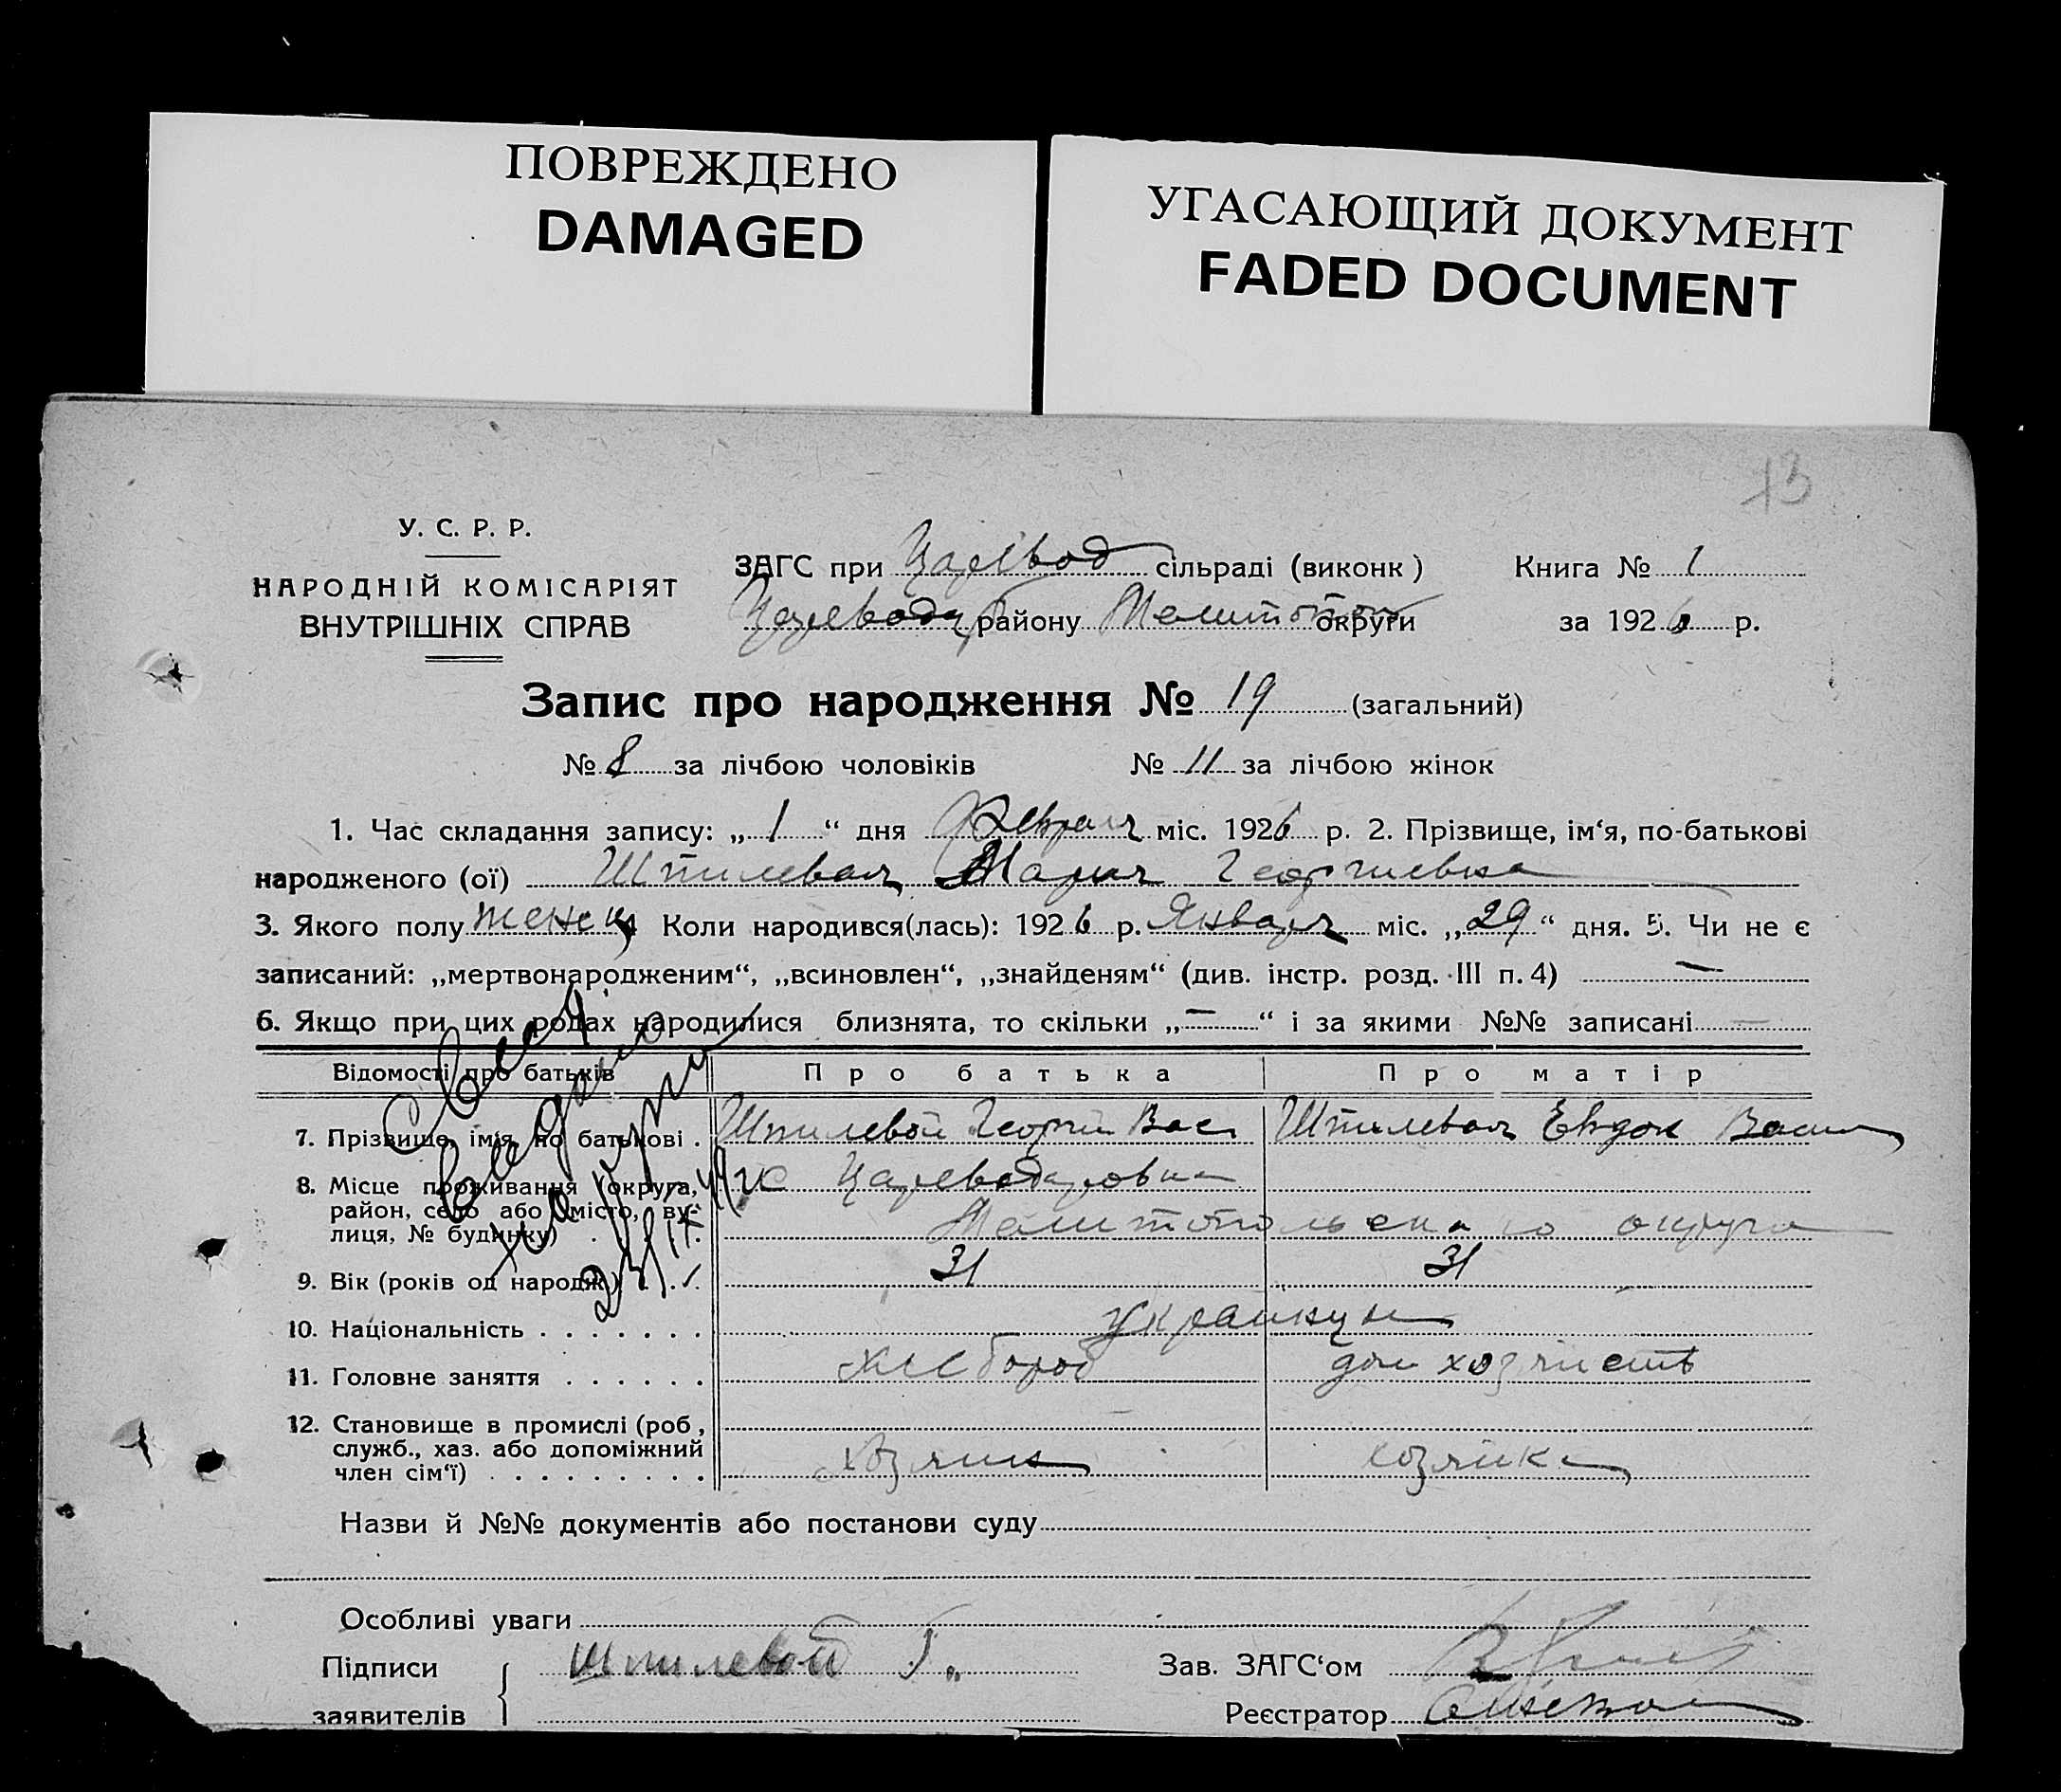 ПОВРЕЖДЕНО
DAMAGED
УГАСАЮЩИЙ ДОКУМЕНТ
FADED DOCUMENT
13
У. С. Р. Р.
НАРОДНІЙ КОМІСАРІЯТ
ВНУТРІШНІХ СПРАВ
ЗАГС при Царевод сільраді (виконк )
району округи
Книга № 1
за 1926 р.
Запис про народження № 19 (загальний)
№ 8 за лічбою чоловіків № 11 за лічбою жінок
1. Час складання запису: „ 1 “ дня Февраля міс. 1926 р. 2. Прізвище, ім‘я, по-батькові
народженого (ої) Шпилевая Мария Георгиевна
3. Якого полу женск Коли народився(лась): 1926 р. Января міс. „29“ дня. 5. Чи не є
записаний: „мертвонародженим“, „всиновлен“, „знайденям“ (див. інстр. розд. III п. 4) —
6. Якщо при цих родах народилися близнята, то скільки „—“ і за якими №№ записані —
Відомості про батьків Про батька Про матір
7. Прізвище, ім‘я, по батькові . Шпилевой Георгий Вас Шпилевая Евдок Васил
8. Місце проживання (округа,
район, село або (місто, ву-
лиця, № будинку)
округа
9. Вік (років од народж.) 31 31
10. Національність . . . . . . . украинцы
11. Головне заняття . . . . . . хлебороб дом хозяйств
12. Становище в промислі (роб ,
служб., хаз. або допоміжний
член сім‘ї) . . . . . . . . . хозяин хозяйка
Назви й №№ документів або постанови суду
Особливі уваги
Підписи Шпилевой Г. Зав. ЗАГС‘ом
заявителів Реєстратор